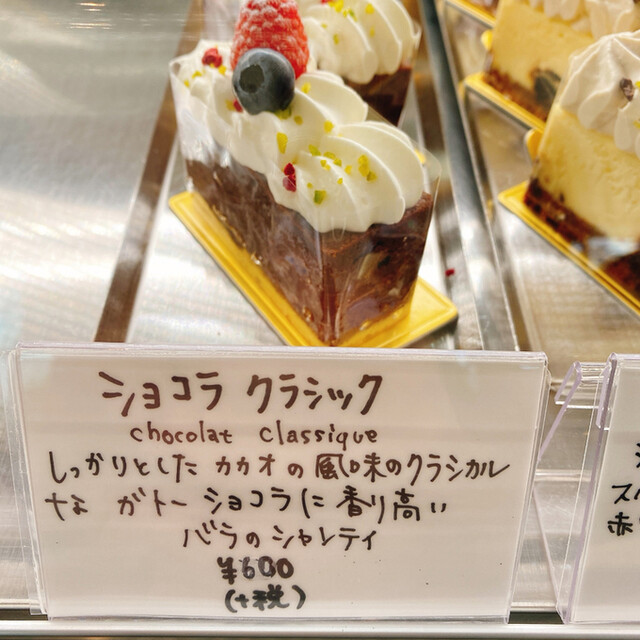 ショコラ クラシック
chocolat classique
しっかりとした カカオの風味のクラシカル
な ガトーショコラに香り高い
バラのシャンティ
¥600
(+税)
ス
赤